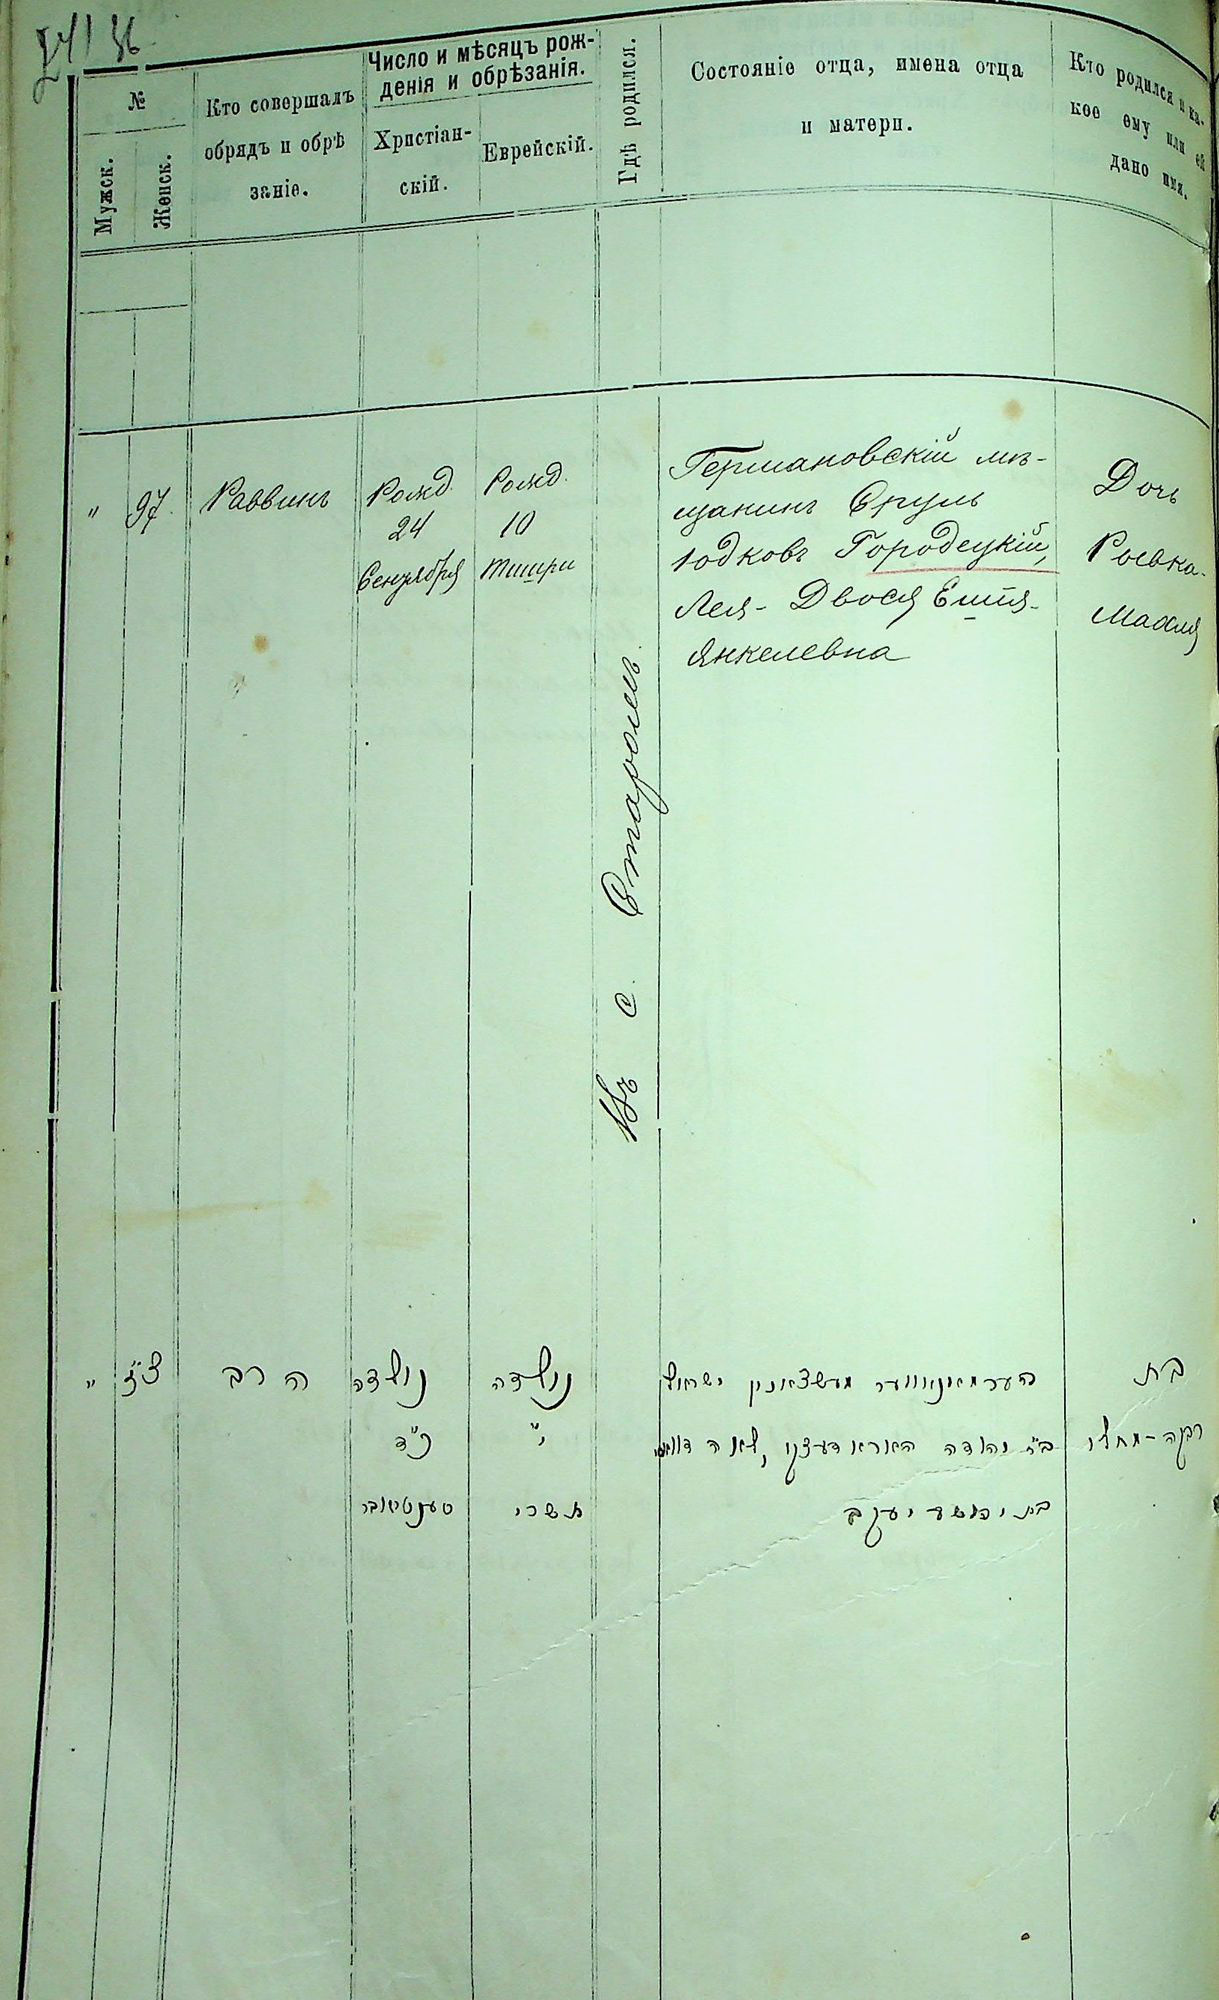 №
Мужск.
Женск.
Кто совершалъ
обрядъ и обрѣ
заніе.
Число и мѣсяцъ рож-
денія и обрѣзанія.
Христіан-
скій.
Еврейскій.
Гдѣ родился.
Состояніе отца, имена отца
и матери.
Кто родился и ка-
кое ему или ей
дано имя.
"
97.
Раввинъ
Рожд.
24
Сентября
Рожд.
10
Тишри
Въ с.
Германовскій мѣ-
щанинъ Сруль
Юдковъ Городецкій,
Лея- Двося
Янкелевна
Дочь
Ривка-
Махля
"
צ״ז
הרב
נולדה
כ״ד
סענטיאבר
נולדה
י״
תשרי
הערמאנאווער מעשצאנין ישראל
ב״ר יהודה האראדעצקי, לאה
בת יהושע יעקב
בת
רבקה-מחלי